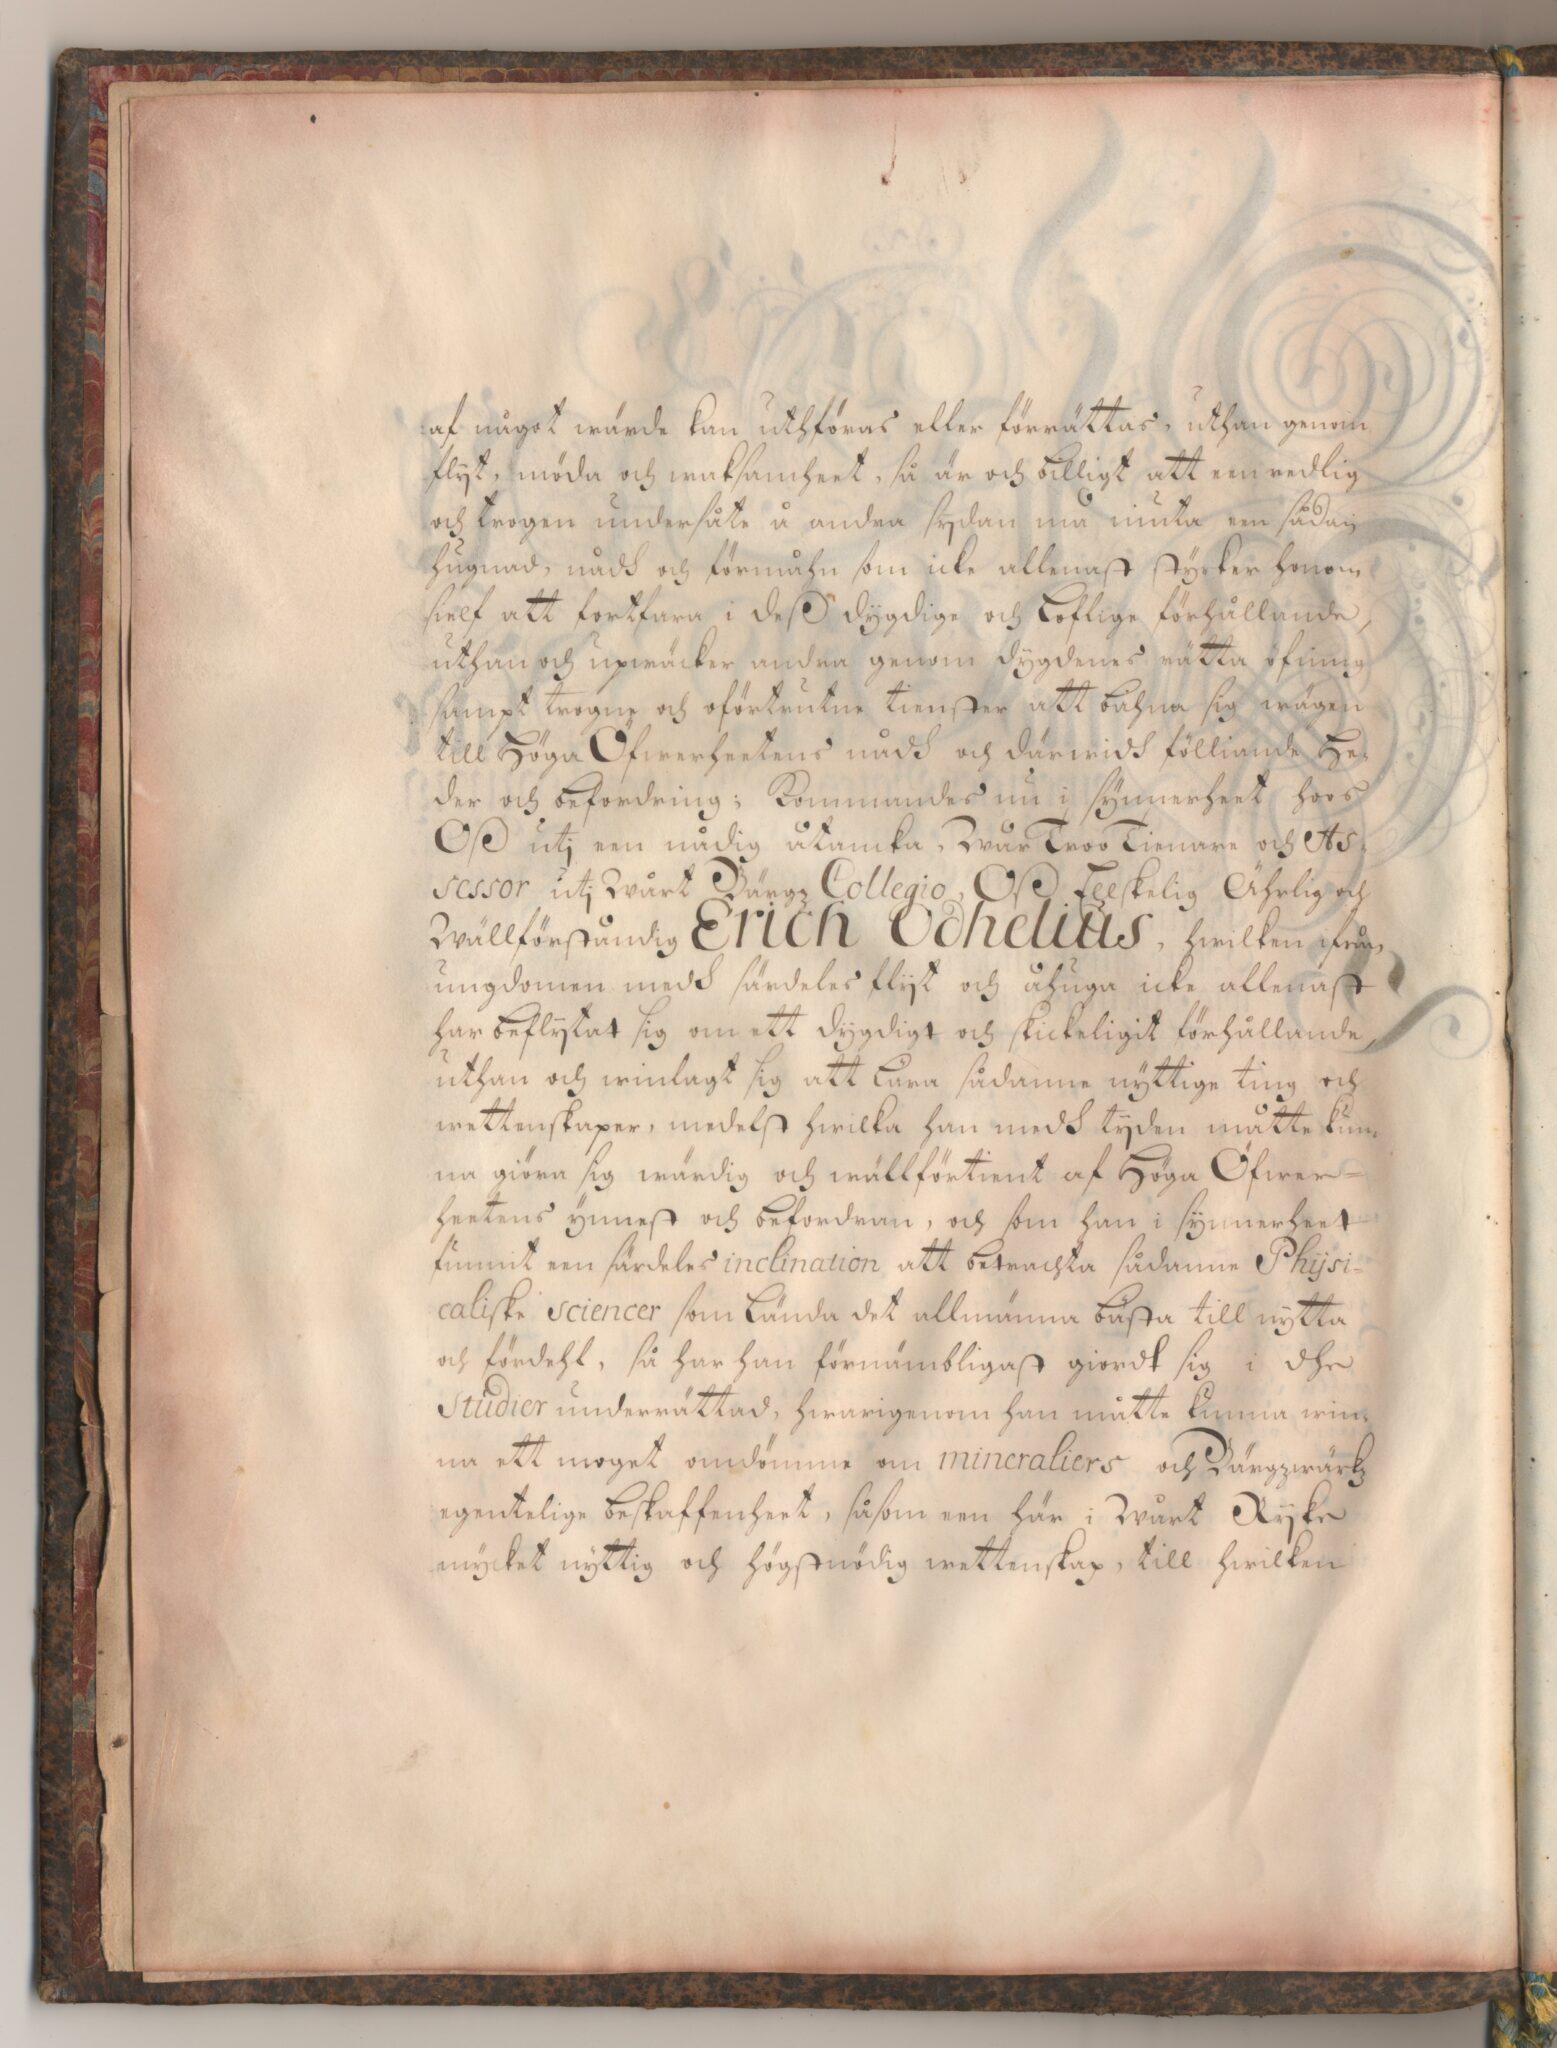 af något wärde kan uthföras eller förrättas, uthan genom
flyt, möda och waksamheet, så är och billigt att een redlig
och trogen undersåte å andra sydan må niuta een sådan
hugnad, nådh och förmåhn som icke allenast styrker honom
sielf att fortfara i dess dygdige och loflige förhållande,
uthan och upwäcker andra genom dygdenes rätta öfning
sampt trogne och oförtrutne tienster att bahna sig wägen
till Höga Öfwerheetens nådh och därwidh fölliande He-
der och befordring; Kommandes nu i synnerheet hoos
Oss utj een nådig åtancka, Wår Troo Tienare och As-
sessor utj Wårt Bärgz Collegio, Oss Elskelig Ährlig och
Wällförståndig Erich Odhelius, hwilken ifrån
ungdomen medh särdeles flyt och åhuga icke allenast
har beflytat sig om ett dygdigt och skickeligit förhållande
uthan och winlagt sig att lära sådanne nyttige ting och
wettenskaper, medelst hwilka han medh tyden måtte kun-
na giöra sig wärdig och wällförtient af Höga Öfwer-
heetens ynnest och befordran, och som han i synnerheet
funnit een särdeles inclination att betrachta sådanne Physi-
caliske sciencer som lända det allmänna bästa till nytta
och fördehl, så har han förnämbligast giordt sig i dhe
Studier underrättad, hwarigenom han måtte kunna win-
na ett moget omdömme om mineraliers och Bärgzwärkz
egentelige beskaffenheet, såsom een här i Wårt Ryke
mycket nyttig och högstnödig wettenskap, till hwilken